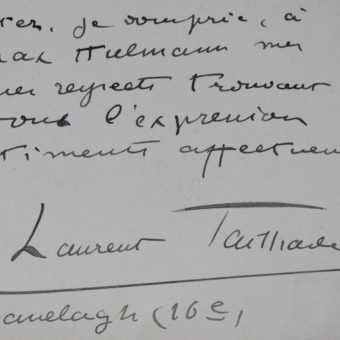 je vous prie, à
mes
mes respects trouvant
l'expression
timents affectueu
Laurent Tailhade
anelagh (16e)